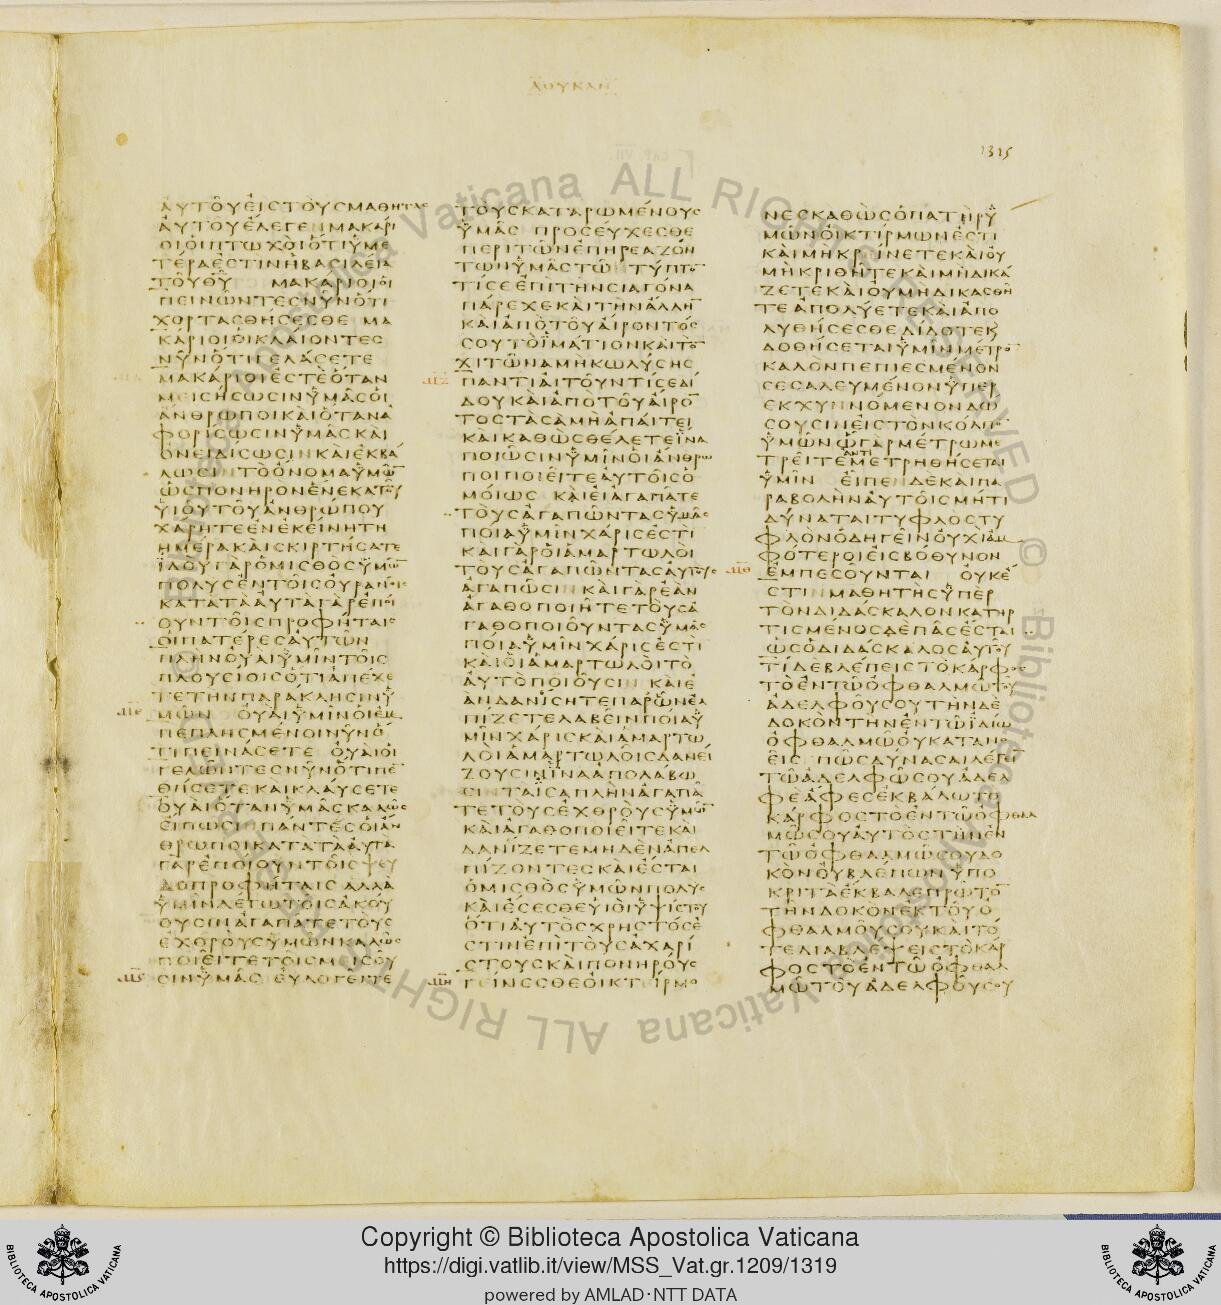 ΛΟΥΚΑΝ
1315
ΑΥΤΟΥΕΙΣΤΟΥΣΜΑΘΗΤΑΣ
ΑΥΤΟΥΕΛΕΓΕΝΜΑΚΑΡΙ
ΟΙΟΙΠΤΩΧΟΙΟΤΙΥΜΕ
ΤΕΡΑΕΣΤΙΝΗΒΑΣΙΛΕΙΑ
ΤΟΥΘΥ ΜΑΚΑΡΙΟΙΟΙ
ΠΕΙΝΩΝΤΕΣΝΥΝΟΤΙ
ΧΟΡΤΑΣΘΗΣΕΣΘΕ ΜΑ
ΚΑΡΙΟΙΟΙΚΛΑΙΟΝΤΕΣ
ΝΥΝΟΤΙΓΕΛΑΣΕΤΕ
ΜΑΚΑΡΙΟΙΕΣΤΕΟΤΑΝ
ΜΕΙΣΗΣΩΣΙΝΥΜΑΣΟΙ
ΑΝΘΡΩΠΟΙΚΑΙΟΤΑΝΑ
ΦΟΡΙΣΩΣΙΝΥΜΑΣΚΑΙ
ΟΝΕΙΔΙΣΩΣΙΝΚΑΙΕΚΒΑ
ΛΩΣΙΝΤΟΟΝΟΜΑΥΜΩ
ΩΣΠΟΝΗΡΟΝΕΝΕΚΑΤΟΥ
ΥΙΟΥΤΟΥΑΝΘΡΩΠΟΥ
ΧΑΡΗΤΕΕΝΕΚΕΙΝΗΤΗ
ΗΜΕΡΑΚΑΙΣΚΙΡΤΗΣΑΤΕ
ΙΔΟΥΓΑΡΟΜΙΣΘΟΣΥΜΩ
ΠΟΛΥΣΕΝΤΟΙΣΟΥΡΑΝΟΙΣ
ΚΑΤΑΤΑΑΥΤΑΓΑΡΕΠΟΙ
ΟΥΝΤΟΙΣΠΡΟΦΗΤΑΙΣ
ΟΙΠΑΤΕΡΕΣΑΥΤΩΝ
ΠΛΗΝΟΥΑΙΥΜΙΝΤΟΙΣ
ΠΛΟΥΣΙΟΙΣΟΤΙΑΠΕΧΕ
ΤΕΤΗΝΠΑΡΑΚΛΗΣΙΝΥ
ΜΩΝ ΟΥΑΙΥΜΙΝΟΙΕΜ
ΠΕΠΛΗΣΜΕΝΟΙΝΥΝΟ
ΤΙΠΕΙΝΑΣΕΤΕ ΟΥΑΙΟΙ
ΓΕΛΩΝΤΕΣΝΥΝΟΤΙΠΕ
ΘΗΣΕΤΕΚΑΙΚΛΑΥΣΕΤΕ
ΟΥΑΙΟΤΑΝΥΜΑΣΚΑΛΩΣ
ΕΙΠΩΣΙΝΠΑΝΤΕΣΟΙΑΝ
ΘΡΩΠΟΙΚΑΤΑΤΑΑΥΤΑ
ΓΑΡΕΠΟΙΟΥΝΤΟΙΣΨΕΥ
ΔΟΠΡΟΦΗΤΑΙΣ ΑΛΛΑ
ΥΜΙΝΛΕΓΩΤΟΙΣΑΚΟΥ
ΟΥΣΙΝΑΓΑΠΑΤΕΤΟΥΣ
ΕΧΘΡΟΥΣΥΜΩΝΚΑΛΩΣ
ΠΟΙΕΙΤΕΤΟΙΣΜΙΣΟΥ
ΣΙΝΥΜΑΣ ΕΥΛΟΓΕΙΤΕ
ΤΟΥΣΚΑΤΑΡΩΜΕΝΟΥΣ
ΥΜΑΣ ΠΡΟΣΕΥΧΕΣΘΕ
ΠΕΡΙΤΩΝΕΠΗΡΕΑΖΟΝ
ΤΩΝΥΜΑΣΤΩ ΤΥΠΤΟ
ΤΙΣΕΕΠΙΤΗΝΣΙΑΓΟΝΑ
ΠΑΡΕΧΕΚΑΙΤΗΝΑΛΛΗ
ΚΑΙΑΠΟΤΟΥΑΙΡΟΝΤΟΣ
ΣΟΥΤΟΙΜΑΤΙΟΝΚΑΙΤΟ
ΧΙΤΩΝΑΜΗΚΩΛΥΣΗΣ
ΠΑΝΤΙΑΙΤΟΥΝΤΙΣΕΔΙ
ΔΟΥΚΑΙΑΠΟΤΟΥΑΙΡΟ
ΤΟΣΤΑΣΑΜΗΑΠΑΙΤΕΙ
ΚΑΙΚΑΘΩΣΘΕΛΕΤΕΙΝΑ
ΠΟΙΩΣΙΝΥΜΙΝΟΙΑΝΘΡΩ
ΠΟΙΠΟΙΕΙΤΕΑΥΤΟΙΣΟ
ΜΟΙΩΣ ΚΑΙΕΙΑΓΑΠΑΤΕ
ΤΟΥΣΑΓΑΠΩΝΤΑΣΥΜΑΣ
ΠΟΙΑΥΜΙΝΧΑΡΙΣΕΣΤΙ
ΚΑΙΓΑΡΟΙΑΜΑΡΤΩΛΟΙ
ΤΟΥΣΑΓΑΠΩΝΤΑΣΑΥΤΟΥΣ
ΑΓΑΠΩΣΙΝΚΑΙΓΑΡΕΑΝ
ΑΓΑΘΟΠΟΙΗΤΕΤΟΥΣΑ
ΓΑΘΟΠΟΙΟΥΝΤΑΣΥΜΑΣ
ΠΟΙΑΥΜΙΝΧΑΡΙΣΕΣΤΙ
ΚΑΙΟΙΑΜΑΡΤΩΛΟΙΤΟ
ΑΥΤΟΠΟΙΟΥΣΙΝ ΚΑΙΕ
ΑΝΔΑΝΙΣΗΤΕΠΑΡΩΝΕΛ
ΠΙΖΕΤΕΛΑΒΕΙΝΠΟΙΑΥ
ΜΙΝΧΑΡΙΣΚΑΙΑΜΑΡΤΩ
ΛΟΙΑΜΑΡΤΩΛΟΙΣΔΑΝΕΙ
ΖΟΥΣΙΝΙΝΑΑΠΟΛΑΒΩ
ΣΙΝΤΑΙΣΑΠΛΗΝΑΓΑΠΑ
ΤΕΤΟΥΣΕΧΘΡΟΥΣΥΜΩ
ΚΑΙΑΓΑΘΟΠΟΙΕΙΤΕΚΑΙ
ΔΑΝΙΖΕΤΕΜΗΔΕΝΑΠΕΛ
ΠΙΖΟΝΤΕΣΚΑΙΕΣΤΑΙ
ΟΜΙΣΘΟΣΥΜΩΝΠΟΛΥΣ
ΚΑΙΕΣΕΣΘΕΥΙΟΙΥΨΙΣΤΟΥ
ΟΤΙΑΥΤΟΣΧΡΗΣΤΟΣΕ
ΣΤΙΝΕΠΙΤΟΥΣΑΧΑΡΙ
ΣΤΟΥΣΚΑΙΠΟΝΗΡΟΥΣ
ΓΕΙΝΕΣΘΕΟΙΚΤΕΙΡΜΟ
ΝΕΣΚΑΘΩΣΟΠΑΤΗΡΥ
ΜΩΝΟΙΚΤΙΡΜΩΝΕΣΤΙ
ΚΑΙΜΗΚΡΕΙΝΕΤΕΚΑΙΟΥ
ΜΗΚΡΙΘΗΤΕΚΑΙΜΗΔΙΚΑ
ΖΕΤΕΚΑΙΟΥΜΗΔΙΚΑΣΘΗ
ΤΕΑΠΟΛΥΕΤΕΚΑΙΑΠΟ
ΛΥΘΗΣΕΣΘΕΔΙΔΟΤΕΚ
ΔΟΘΗΣΕΤΑΙΥΜΙΝΜΕΤΡΟ
ΚΑΛΟΝΠΕΠΙΕΣΜΕΝΟΝ
ΣΕΣΑΛΕΥΜΕΝΟΝΥΠΕΡ
ΕΚΧΥΝΝΟΜΕΝΟΝΔΩ
ΣΟΥΣΙΝΕΙΣΤΟΝΚΟΛΠΟ
ΥΜΩΝΩΓΑΡΜΕΤΡΩΜΕ
ΑΝΤΙ
ΤΡΕΙΤΕΜΕΤΡΗΘΗΣΕΤΑΙ
ΥΜΙΝ ΕΙΠΕΝΔΕΚΑΙΠΑ
ΡΑΒΟΛΗΝΑΥΤΟΙΣΜΗΤΙ
ΔΥΝΑΤΑΙΤΥΦΛΟΣΤΥ
ΦΛΟΝΟΔΗΓΕΙΝΟΥΧΙΑΜ
ΦΟΤΕΡΟΙΕΙΣΒΟΘΥΝΟΝ
ΕΜΠΕΣΟΥΝΤΑΙ ΟΥΚΕ
ΣΤΙΝΜΑΘΗΤΗΣΥΠΕΡ
ΤΟΝΔΙΔΑΣΚΑΛΟΝΚΑΤΗΡ
ΤΙΣΜΕΝΟΣΔΕΠΑΣΕΣΤΑΙ
ΩΣΟΔΙΔΑΣΚΑΛΟΣΑΥΤΟΥ
ΤΙΔΕΒΛΕΠΕΙΣΤΟΚΑΡΦΟΣ
ΤΟΕΝΤΩΟΦΘΑΛΜΩΤΟΥ
ΑΔΕΛΦΟΥΣΟΥΤΗΝΔΕ
ΔΟΚΟΝΤΗΝΕΝΤΩΙΔΙΩ
ΟΦΘΑΛΜΩΟΥΚΑΤΑΝΟ
ΕΙΣ ΠΩΣΔΥΝΑΣΑΙΛΕΓΕΙ
ΤΩΑΔΕΛΦΩΣΟΥΑΔΕΛ
ΦΕΑΦΕΣΕΚΒΑΛΩΤΟ
ΚΑΡΦΟΣΤΟΕΝΤΩΟΦΘΑΛ
ΜΩΣΟΥΑΥΤΟΣΤΗΝΕΝ
ΤΩΟΦΘΑΛΜΩΣΟΥΔΟ
ΚΟΝΟΥΒΛΕΠΩΝΥΠΟ
ΚΡΙΤΑΕΚΒΑΛΕΠΡΩΤΟ
ΤΗΝΔΟΚΟΝΕΚΤΟΥΟ
ΦΘΑΛΜΟΥΣΟΥΚΑΙΤΟ
ΤΕΔΙΑΒΛΕΨΕΙΣΤΟΚΑΡ
ΦΟΣΤΟΕΝΤΩΟΦΘΑΛ
ΜΩΤΟΥΑΔΕΛΦΟΥΣΟΥ
Copyright © Biblioteca Apostolica Vaticana
https://digi.vatlib.it/view/MSS_Vat.gr.1209/1319
powered by AMLAD·NTT DATA
BIBLIOTECA APOSTOLICA VATICANA
BIBLIOTECA APOSTOLICA VATICANA